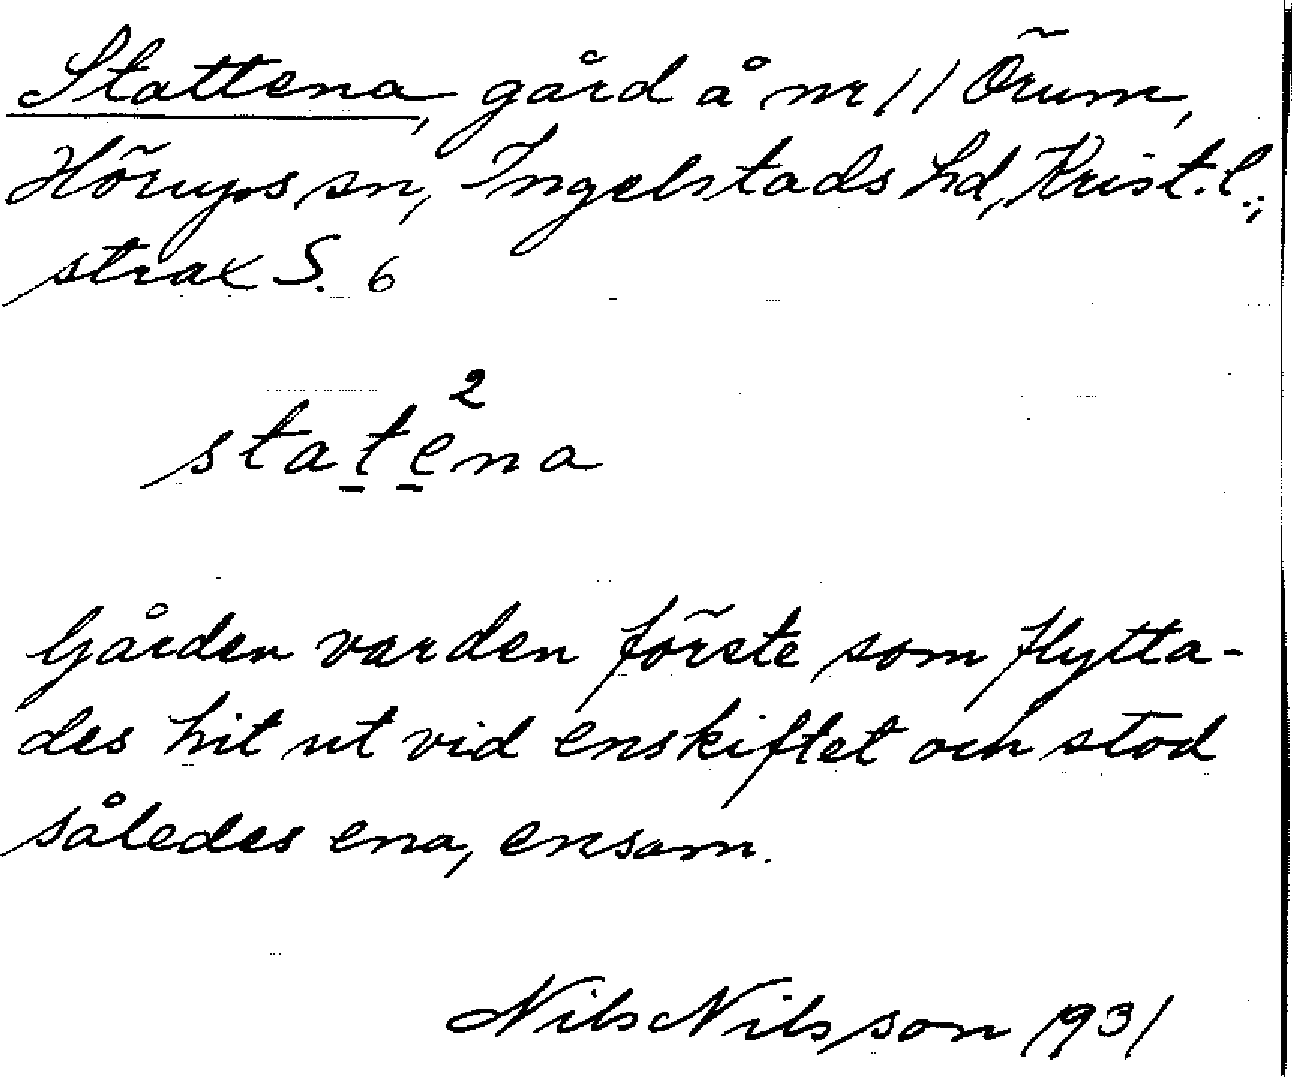 Stattena, gård å nr 11 Örum,
Hörups sn, Ingelstads hd, Krist. l.;
strax S. 6
2
statena
Gården var den förste som flytta-
des hit ut vid enskiftet och stod
således ena, ensam.
Nils Nilsson 1931